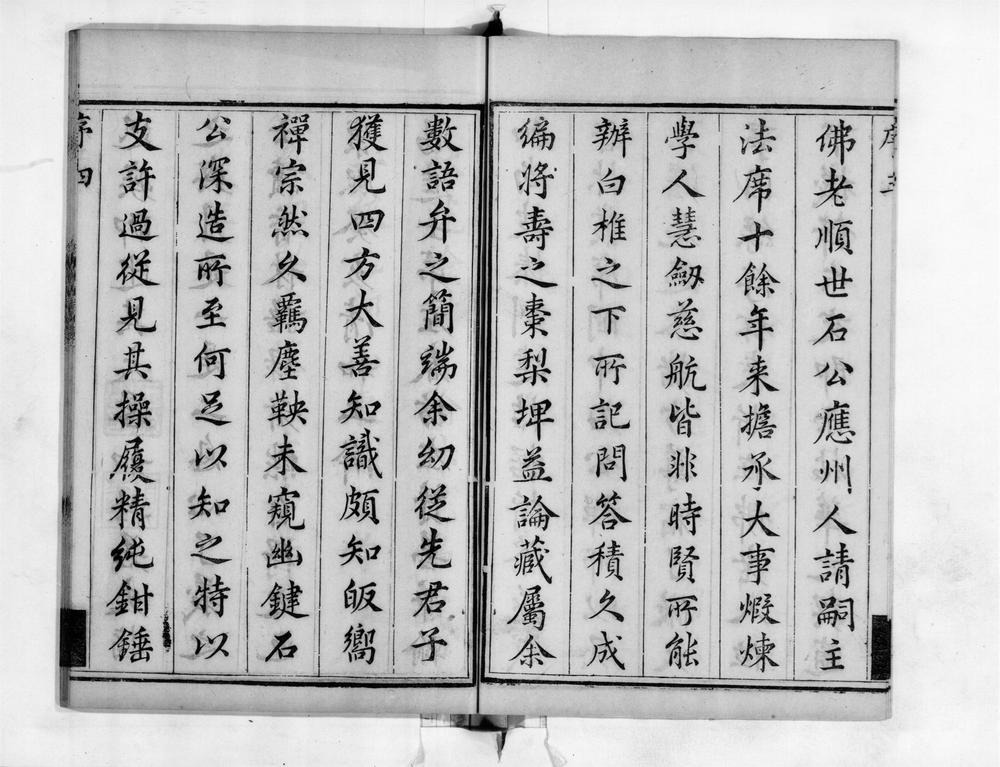 序三
佛老順世石公應州人請嗣主
法席十餘年来擔承大事煅煉
學人慧劒慈航皆非時賢所能
辨白椎之下所記問答積久成
編将壽之棗梨埤益論藏屬余
數語弁之簡端余幼從先君子
獲見四方大善知識頗知皈嚮
禪宗然久羈塵鞅未窺幽鍵石
公深造所至何足以知之特以
支許過從見其操履精純鉗錘
序四